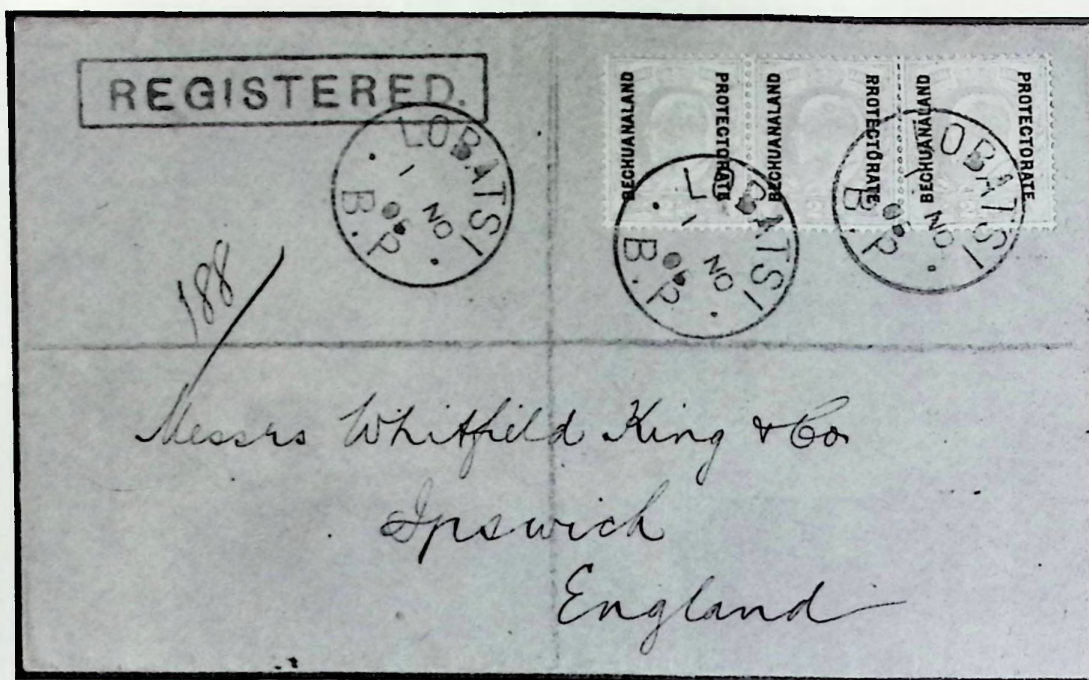 REGISTERED.
BECHUANALAND PROTECTORATE
BECHUANALAND RROTECTORATE
BECHUANALAND PROTECTORATE
LOBATSI
1
NO
B.P.
LOBATSI
1
NO
B.P.
LOBATSI
1
NO
B.P.
188
Messrs Whitfield King & Co
Ipswich
England